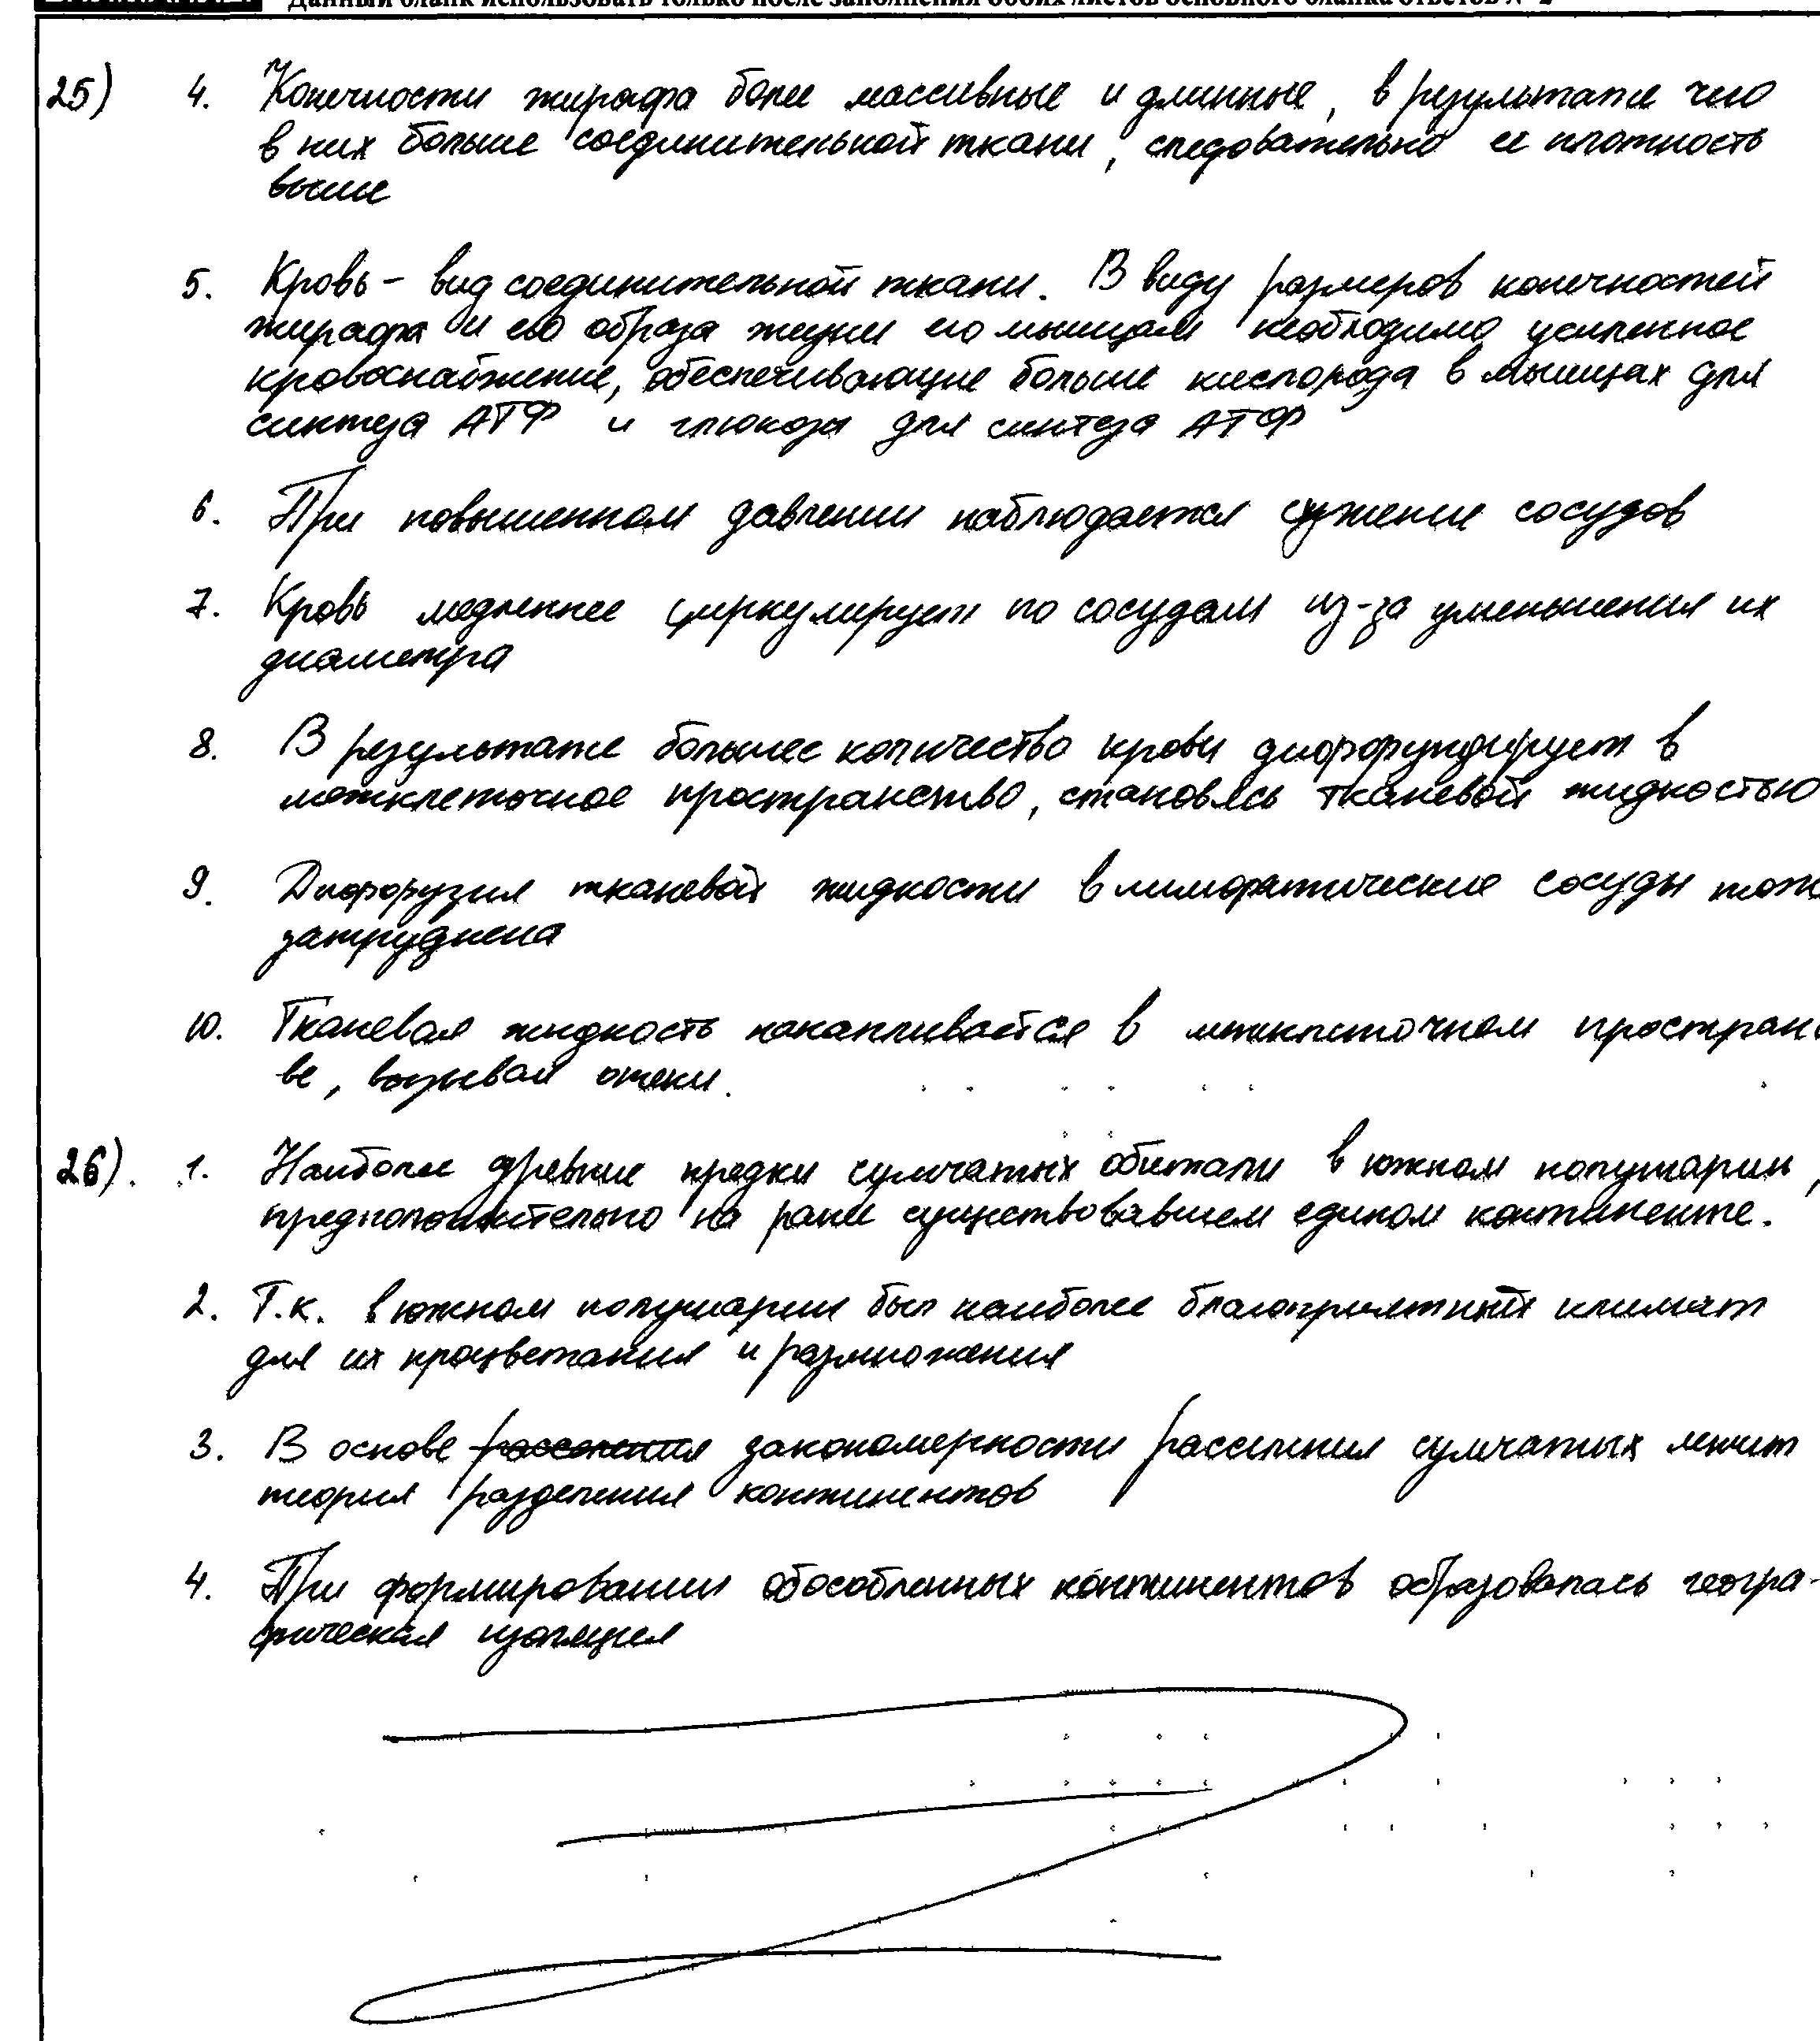 Данный бланк использовать только после заполнения обоих листов основного бланка ответов № 2
25) 4. Конечности жирафа более массивные и длинные, в результате чего
в них больше соединительной ткани, следовательно ее плотность
выше
5. Кровь - вид соединительной ткани. В виду размеров конечностей
жирафа и его образа жизни его мышцам необходимо усиленное
кровоснабжение, обеспечивающие больше кислорода в мышцах для
синтеза АТФ и глюкозы для синтеза АТФ
6. При повышенном давлении наблюдается сужение сосудов
7. Кровь медленнее циркулирует по сосудам из-за уменьшения их
диаметра
8. В результате большее количество крови диффундирует в
межклеточное пространство, становясь тканевой жидкостью
9. Диффузия тканевой жидкости в лимфатические сосуды тож
затруднена
10. Тканевая жидкость накапливается в межклеточном простран
ве, вызывая отеки.
26). 1. Наиболее древние предки сумчатых обитали в южном полушарии,
предположительно на ранее существовавшем едином континенте.
2. Т.к. в южном полушарии был наиболее благоприятный климат
для их процветания и размножения
3. В основе расселения закономерности расселения сумчатых лежит
теория разделения континентов
4. При формировании обособленных континентов образовалась геогра-
фическая изоляция